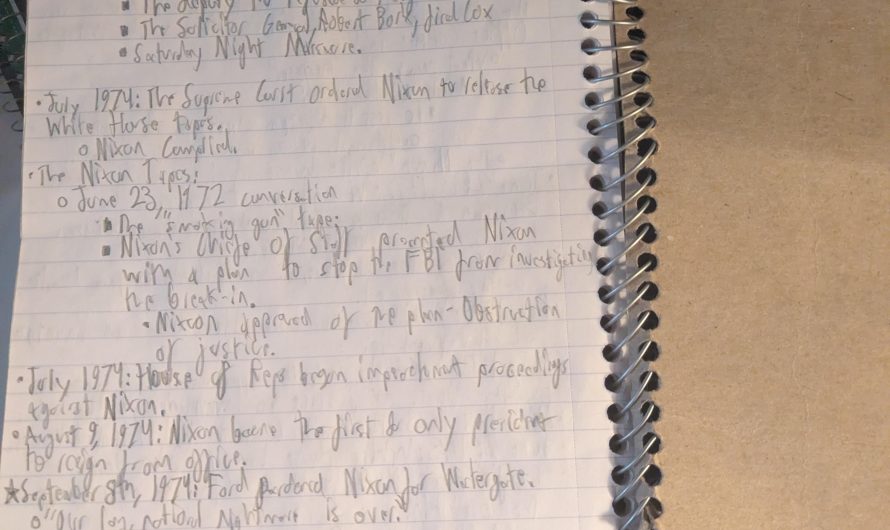 ▪ The
▪ The Solicitor General, Robert Bork, fired Cox
▪ Saturday Night Massacre.
• July 1974: The Supreme Court ordered Nixon to release the
White House tapes.
o Nixon Complied.
• The Nixon Tapes:
o June 23, 1972 conversation
▪ The "smoking gun" tape:
▪ Nixon's Chiefe of Staff presented Nixon
with a plan to stop the FBI from investigating
the break-in.
• Nixon approved of the plan - Obstruction
of justice.
• July 1974: House of Reps began impeachment proceedings
against Nixon.
• August 9, 1974: Nixon became the first & only president
to resign from office.
★ September 8th, 1974: Ford pardoned Nixon for Watergate.
o "Our long national Nightmare is over."